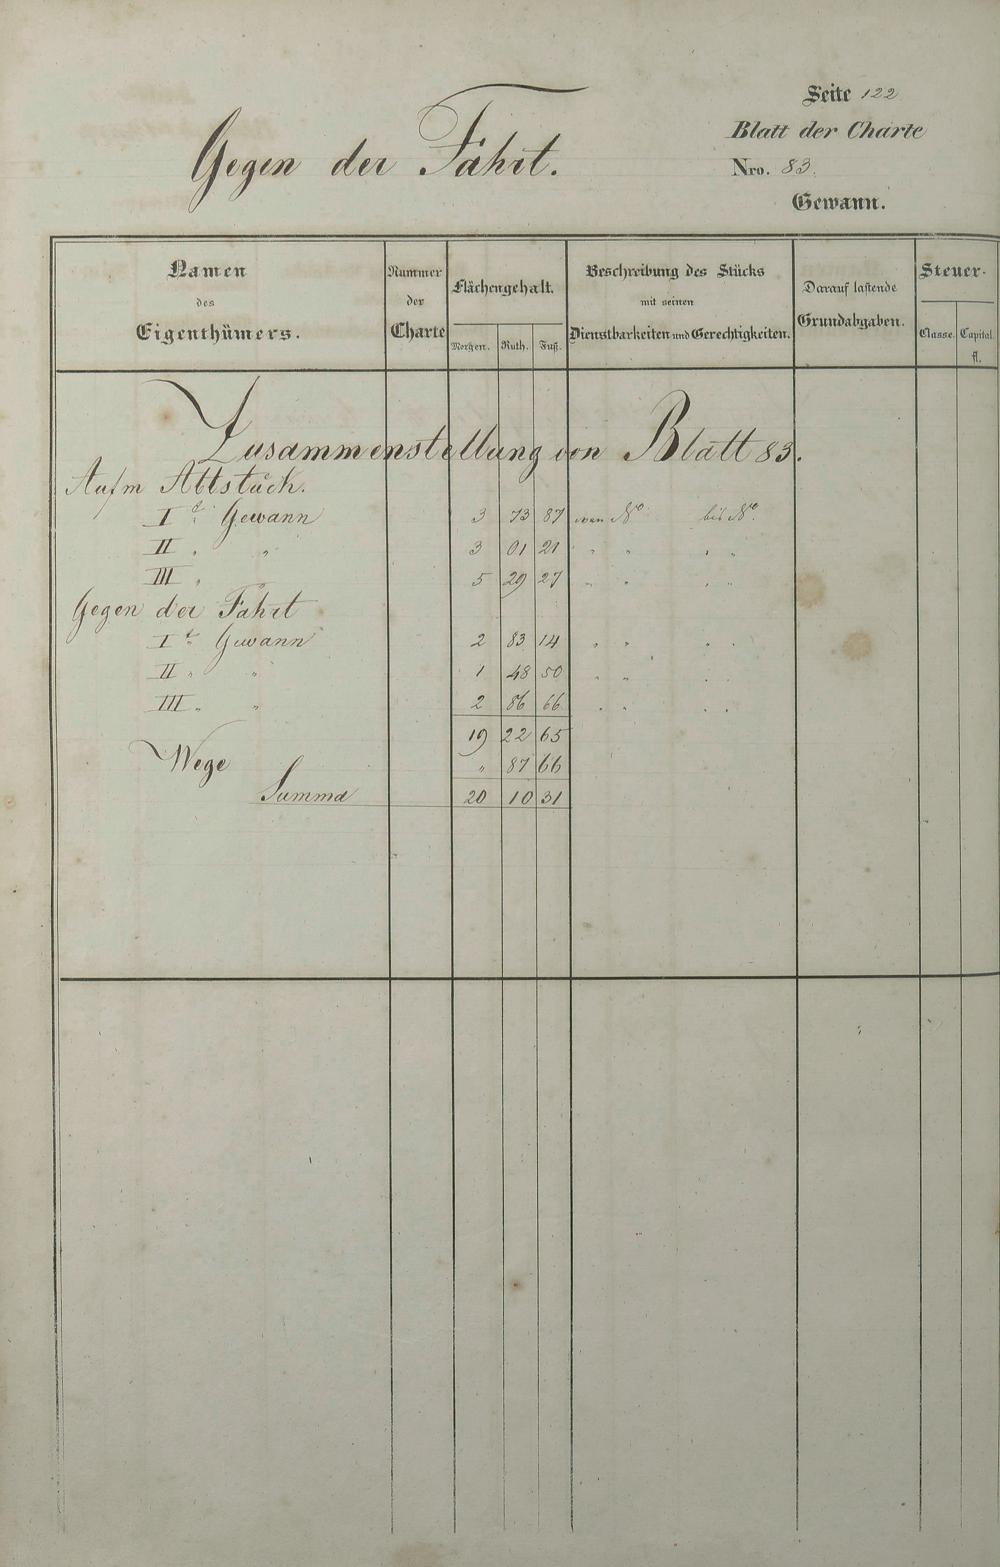 Gegen der Fahrt.
Seite 122
Blatt der Charte
Nro. 83.
Gewann.
Namen des Eigenthümers.
Nummer der Charte
Flächengehalt.
Morgen. Ruth. Fuß.
Beschreibung des Stücks mit seinen Dienstbarkeiten und Gerechtigkeiten.
Darauf lastende Grundabgaben.
Steuer-
Classe. Capital. fl.
Zusammenstellung von Blatt 83.
Aufm
I Gewann 3 73 87 von No bis No.
II " " 3 01 21 " " " "
III " 5 29 27 " " " "
Gegen der Fahrt
I Gewann 2 83 14 " " " "
II " " 1 48 50 " " " "
III " " 2 86 66 " " " "
19 22 65
Wege " 87 66
Summa 20 10 31